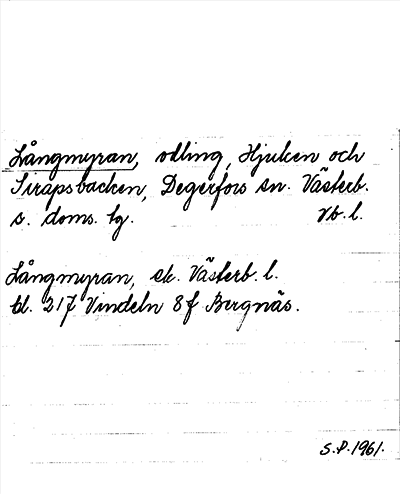 Långmyran, odling, Hjuken och
Sirapsbacken, Degerfors sn. Västerb.
s. doms. lg. Vb. l.
Långmyran, ek. Västerb. l.
bl. 217 Vindeln 8f Bergnäs.
S.P. 1961.